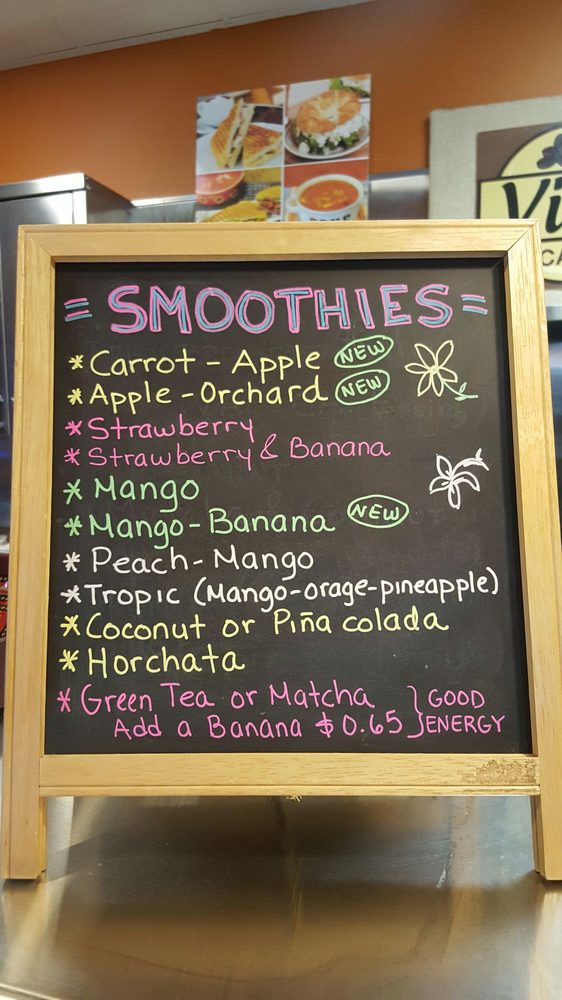 = SMOOTHIES =
* Carrot - Apple NEW
* Apple - Orchard NEW
* Strawberry
* Strawberry & Banana
* Mango
* Mango - Banana NEW
* Peach - Mango
* Tropic (Mango-orage-pineapple)
* Coconut or Piña colada
* Horchata
* Green Tea or Matcha } GOOD
Add a Banana $ 0.65 } ENERGY